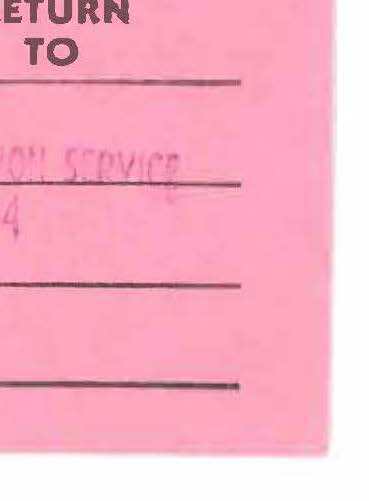 ETURN
TO
ON SERVICE
4